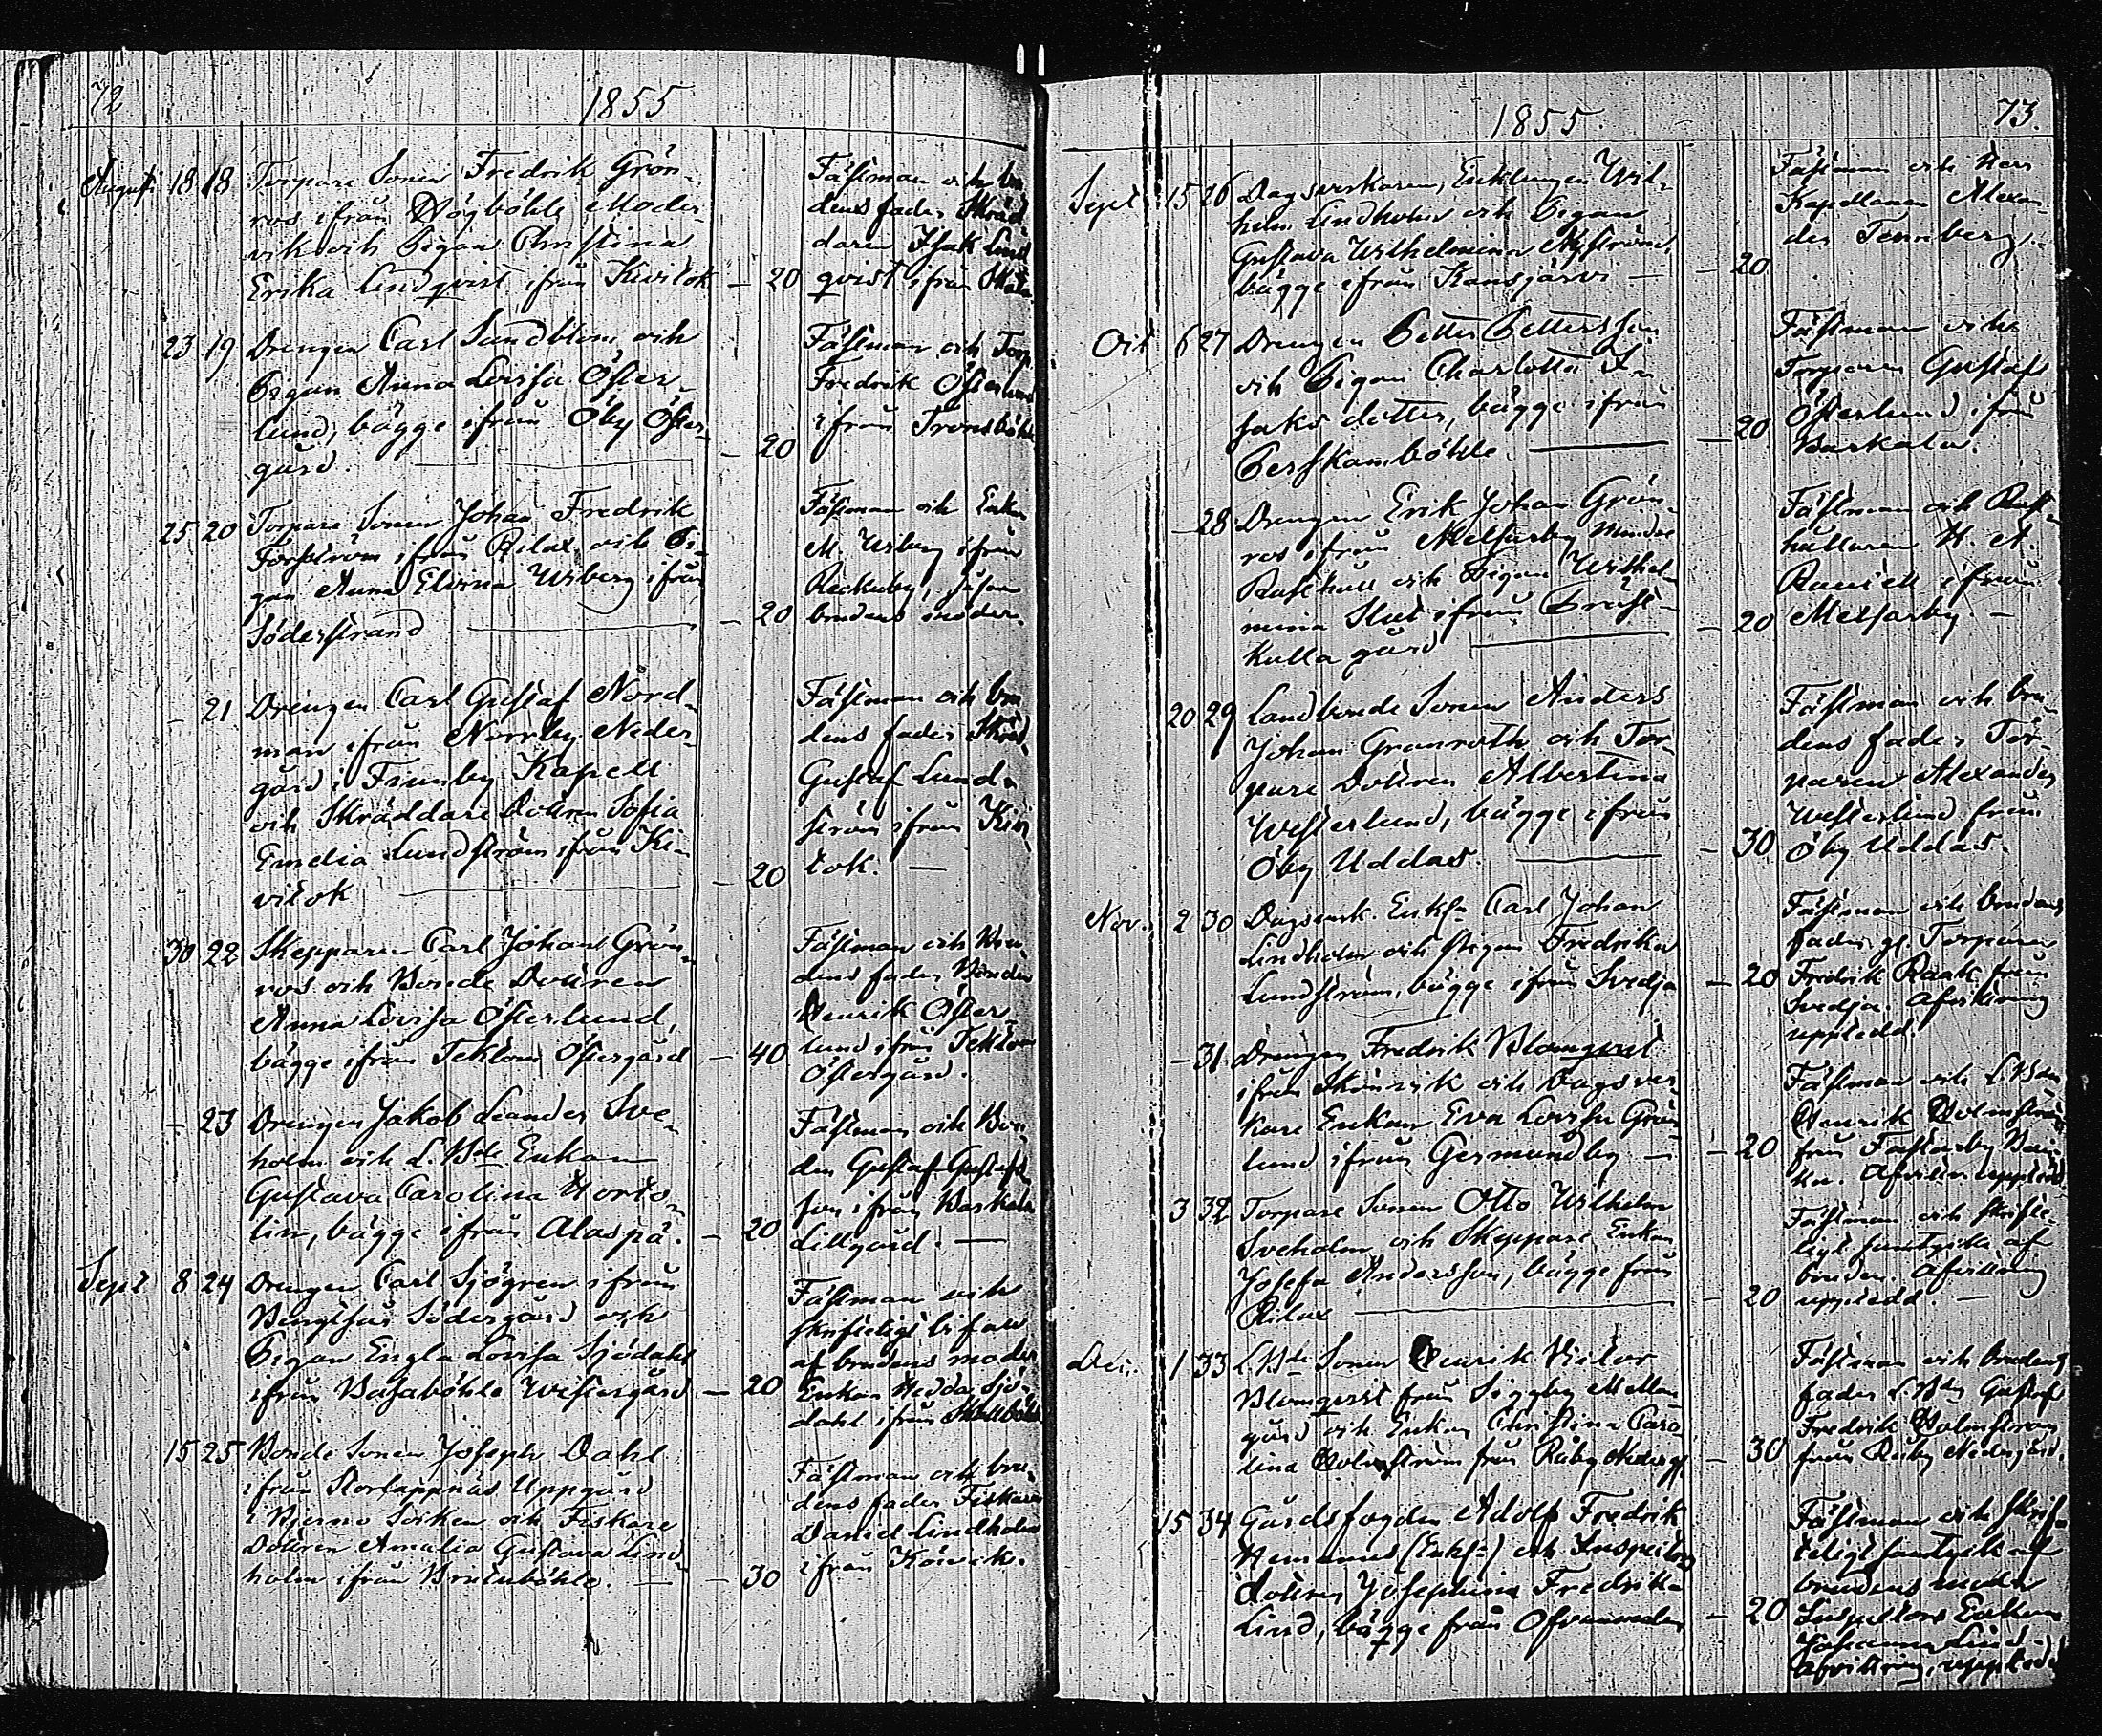 72
1855
Augusti 18 18 Torpare Sonen Fredrik Grön-
ros ifrån Högböhle, Moder-
vik och Pigan Christina
Erika Lindqvist ifrån Kivitok — 20
Fästman och bru
dens fader Skräd
daren Isak Lind
qvist ifrån
23 19 Drengen Carl Sundblom och
Pigan Anna Lovisa Öster-
lund, bägge ifrån Öby Öster-
gård. — 20
Fästman och Torp.
Fredrik Österlund
ifrån Tronsböhle
25 20 Torpare Sonen Johan Fredrik
Forsström ifrån Rilax och Pi-
gan Anna Elvina Urberg ifrån
Söderstrand — 20
Fästman och Enkan
M. Urberg ifrån
såsom
brudens moder.
— 21 Drengen Carl Gustaf Nord-
man ifrån Norrby Neder-
gård i Tromby Kapell
och Skräddare Dottren Sofia
Emelia Lundström ifrån Ki-
vitok — 20
Fästman och bru
dens fader Skräd.
Gustaf Lund-
ström ifrån Kivi
tok. —
30 22 Skepparen Carl Johan Grön-
ros och Bonde Dottren
Anna Lovisa Österlund,
bägge ifrån Teklom Östergård — 40
Fästman och bru
dens fader Bonden
Henrik Öster-
lund ifrån Teklom
Östergård.
— 23 Drengen Jakob Leander Sve-
holm och L. Bde Enkan
Gustava Carolina Horto-
lin, bägge ifrån Alaspä. — 20
Fästman och Bon-
den Gustaf Gustafs
son ifrån Baskala
Lillgård. —
Sept 8 24 Drengen Carl Sjögren ifrån
Bengtsår Södergård och
Pigan Engla Lovisa Sjödahl
ifrån Basaböhle Westergård — 20
Fästman och
skrifteligt bifall
af brudens moder
Enkan Hedda Sjö-
dahl ifrån
15 25 Bonde Sonen Joseph Dahl
ifrån Storlappnäs Uppgård
i Bjerno Socken och Fiskare
Dottren Amalia Gustava Lind-
holm ifrån — 30
Fästman och bru-
dens fader Fiskaren
Daniel Lindholm
ifrån Könvik.
1855.
73.
Sept 15 26 Dagsverkaren, Enklingen Wil-
helm Lindholm och Pigan
Gustava Wilhelmina Nyström,
bägge ifrån Kansjärvi — — 20
Fästman och Herr
Kapellanen Alexan-
der Tennberg.
Oct 6 27 Drengen Petter Pettersson
och Pigan Charlotta I-
saks dotter, bägge ifrån
Perskamböhle — 20
Fästman och
Torparen Gustaf
Österlund ifrån
Baskala.
— 28 Drengen Erik Johan Grön-
ros ifrån Melsarby mindre
Rusthåll och Pigan Wilhel-
mina Slut ifrån Prest-
kulla gård — 20
Fästman och Rust-
hållaren H. A.
ifrån
Melsarby —
20 29 Landbonde Sonen Anders
Johan Granroth och Tor-
pare Dottren Albertina
Westerlund, bägge ifrån
Öby Uddas. — 30
Fästman och bru-
dens fader Tor-
paren Alexander
Westerlund från
Öby Uddas.
Nov. 2 30 Dagsverk. Enkl. Carl Johan
Lindholm och Pigan Fredrika
Lundström, bägge ifrån Svedja — 20
Fästman och brudens
fader gl. Torparen
Fredrik Raak från
Svedja. Afvittring
uppledd.
— 31 Drengen Fredrik Blomqvist
ifrån Skönvik och Dagsver-
kare Enkan Eva Lovisa Grön-
lund ifrån Germundby — — 20
Fästman och L. Bden
Henrik Holmström
från Fastarby
Afvittr. uppledd
3 32 Torpare Sonen Otto Wilhelm
Sveholm och Skeppare Enkan
Josefa Andersson, bägge från
Rilax — 20
Fästman och skrifte-
ligt samtycke af
bruden. Afvittring
uppledd. —
Dec. 1 33 L. Bde Sonen Henrik Victor
Blomqvist från Siggby Mellan-
gård och Enkan Christina Caro-
lina Holmström från Råby Nederg. — 30
Fästman och brudens
fader L. Bden Gustaf
Fredrik Holmström
från Råby Nedergård.
15 34 Gårdsfogden Adolf Fredrik
(Enkl.) och Inspektors
dottren Josephina Fredrika
Lind, bägge från — 20
Fästman och skrif-
teligt samtycke af
brudens moder
Inspektors Enkan
Johanna Lind.
Afvittring uppledd